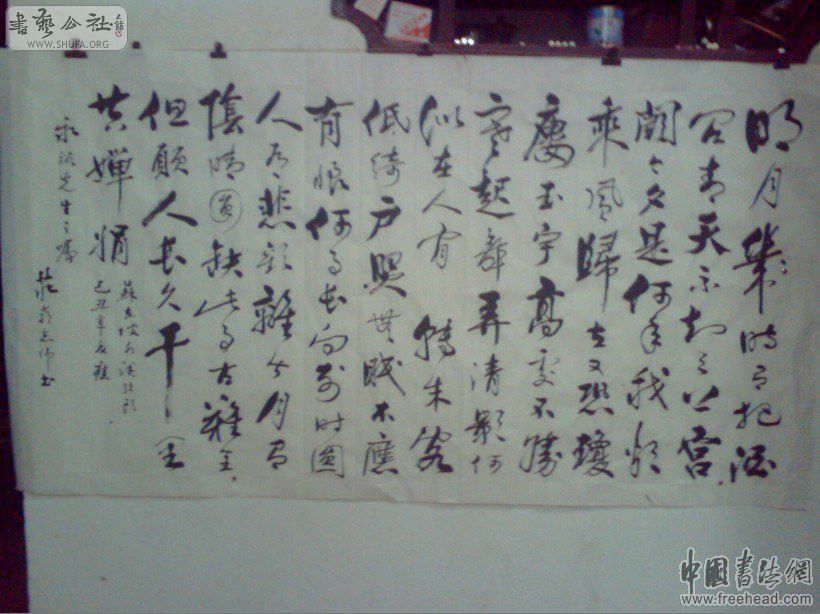 書藝公社
WWW.SHUFA.ORG
明月幾時有把酒
問青天不知天上宮
闕今夕是何年我欲
乘風歸去又恐瓊
樓玉宇高處不勝
寒起舞弄清影何
似在人間轉朱閣
低綺户照無眠不應
有恨何事长向别时圆
人有悲歡離合月有
陰晴圓缺此事古難全
但願人長久千里
共嬋娟
蘇東坡水調歌頭
己丑年夏
先生之嘱
书
中國書法網
www.freehead.com